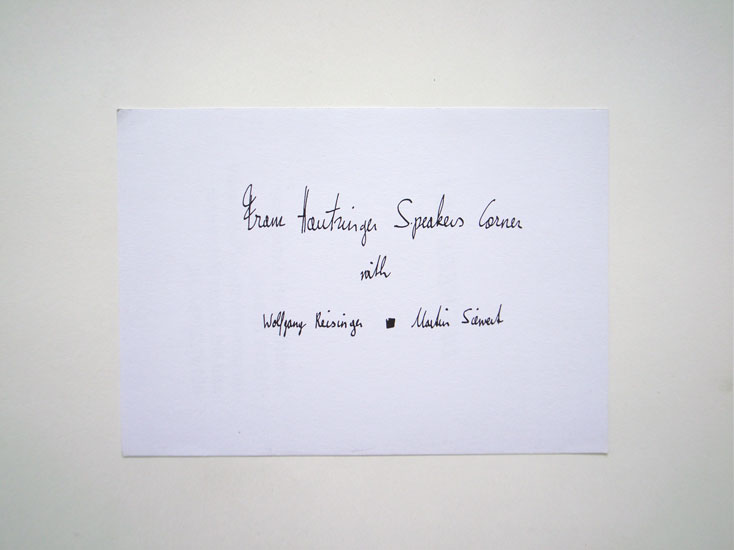 Franz Hautzinger Speakers Corner
with
Wolfgang Reisinger ■ Martin Siewert